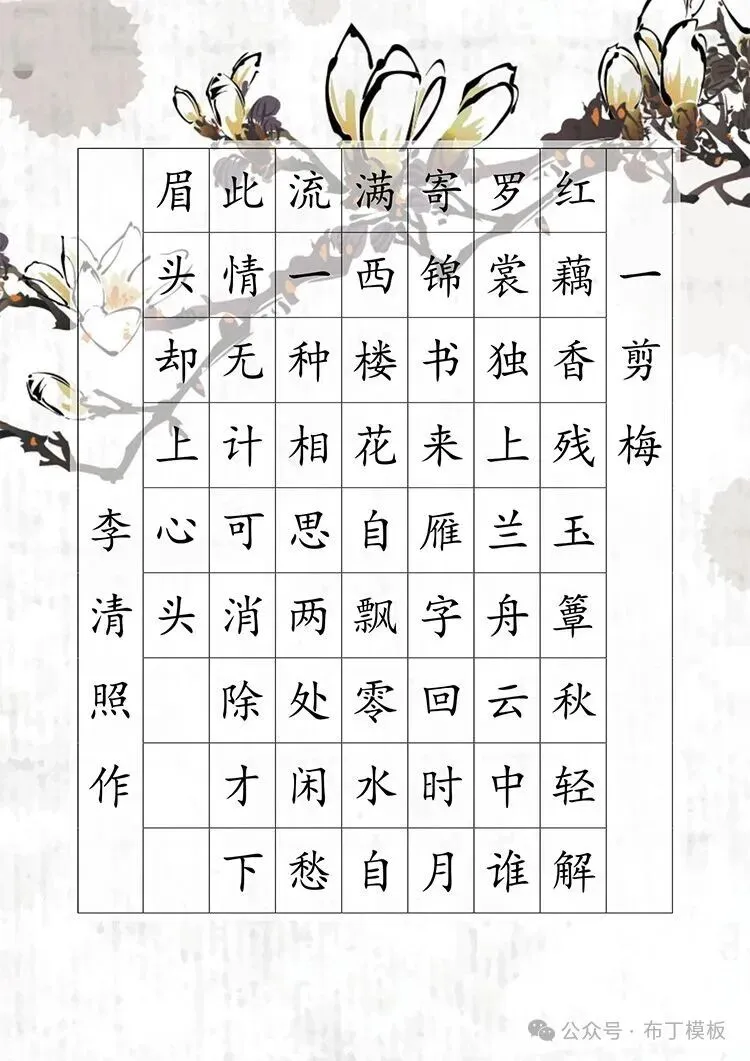 一剪梅
红藕香残玉簟秋轻解
罗裳独上兰舟云中谁
寄锦书来雁字回时月
满西楼花自飘零水自
流一种相思两处闲愁
此情无计可消除才下
眉头却上心头
李清照作
公众号·布丁模板